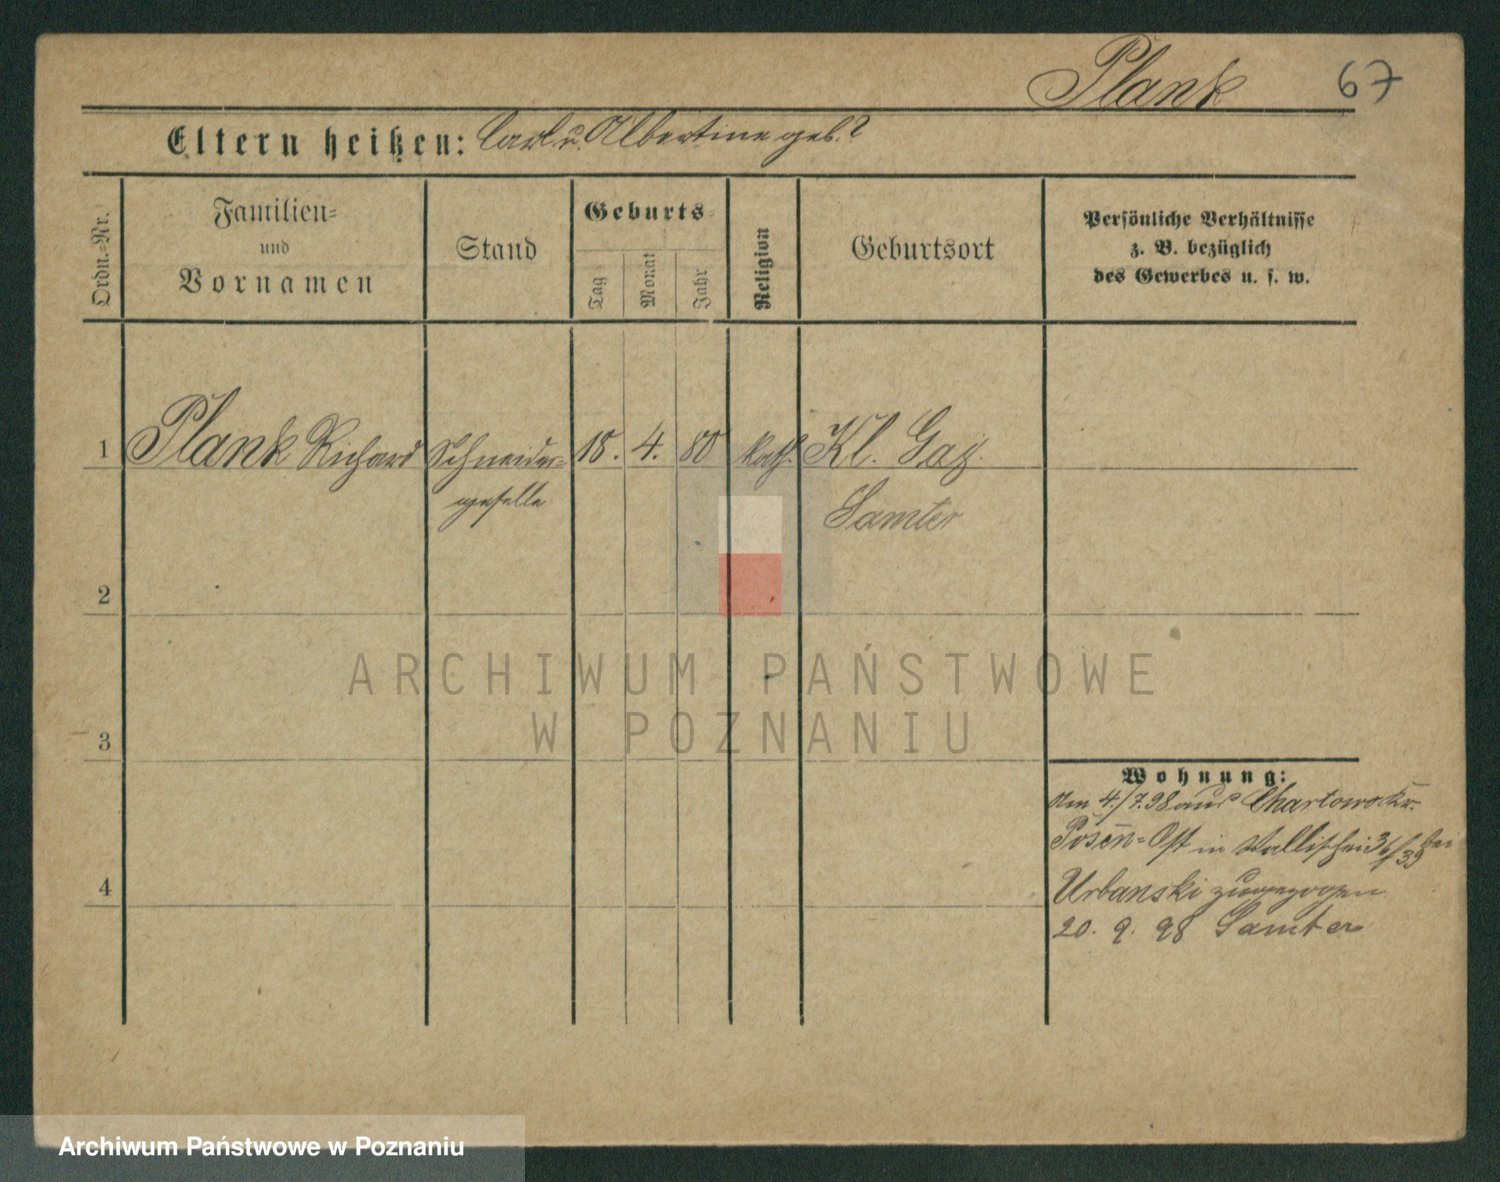 Plank 67
Eltern heißen: Carl u. Albertine geb. ?
Ordn.-Nr.
Familien-
und
Vornamen
Stand
Geburts-
Tag
Monat
Jahr
Religion
Geburtsort
Persönliche Verhältnisse
z. B. bezüglich
des Gewerbes u. s. w.
1 Plank Richard Schneider- 18. 4. 80 kath. Kl. Gaj.
geselle Samter
2
3
4
Wohnung:
Am 4./7.98 aus Chartowo Kr.
Posen-Ost in Wallischei bei
Urbanski zugezogen
20. 9. 98 Samter
ARCHIWUM PAŃSTWOWE
W POZNANIU
Archiwum Państwowe w Poznaniu